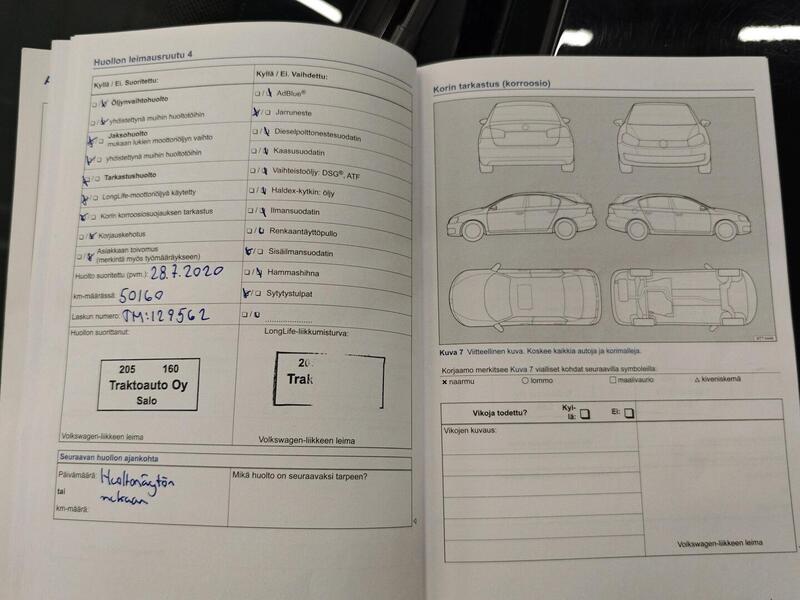 Huollon leimausruutu 4
Kyllä / Ei. Suoritettu:
Öljynvaihtohuolto
yhdistettynä muihin huoltotöihin
Jaksohuolto
mukaan lukien moottoriöljyn vaihto
yhdistettynä muihin huoltotöihin
Tarkastushuolto
LongLife-moottoriöljyä käytetty
Korin korroosiosuojauksen tarkastus
Korjauskehotus
Asiakkaan toivomus
(merkintä myös työmääräykseen)
Huolto suoritettu (pvm.): 28.7.2020
km-määrässä: 50160
Laskun numero: TM:129562
Huollon suorittanut:
205 160
Traktoauto Oy
Salo
Volkswagen-liikkeen leima
Kyllä / Ei. Vaihdettu:
AdBlue®
Jarruneste
Dieselpolttonestesuodatin
Kaasusuodatin
Vaihteistoöljy: DSG®, ATF
Haldex-kytkin: öljy
Ilmansuodatin
Renkaantäyttöpullo
Sisäilmansuodatin
Hammashihna
Sytytystulpat
LongLife-liikkumisturva:
Trak
Volkswagen-liikkeen leima
Seuraavan huollon ajankohta
Päivämäärä: Huoltonäytön
tai mukaan
km-määrä:
Mikä huolto on seuraavaksi tarpeen?
Korin tarkastus (korroosio)
Kuva 7 Viitteellinen kuva. Koskee kaikkia autoja ja korimalleja.
Korjaamo merkitsee Kuva 7 vialliset kohdat seuraavilla symboleilla:
x naarmu ○ lommo □ maalivaurio △ kiveniskemä
Vikoja todettu? Kyl-
lä: Ei:
Vikojen kuvaus:
Volkswagen-liikkeen leima